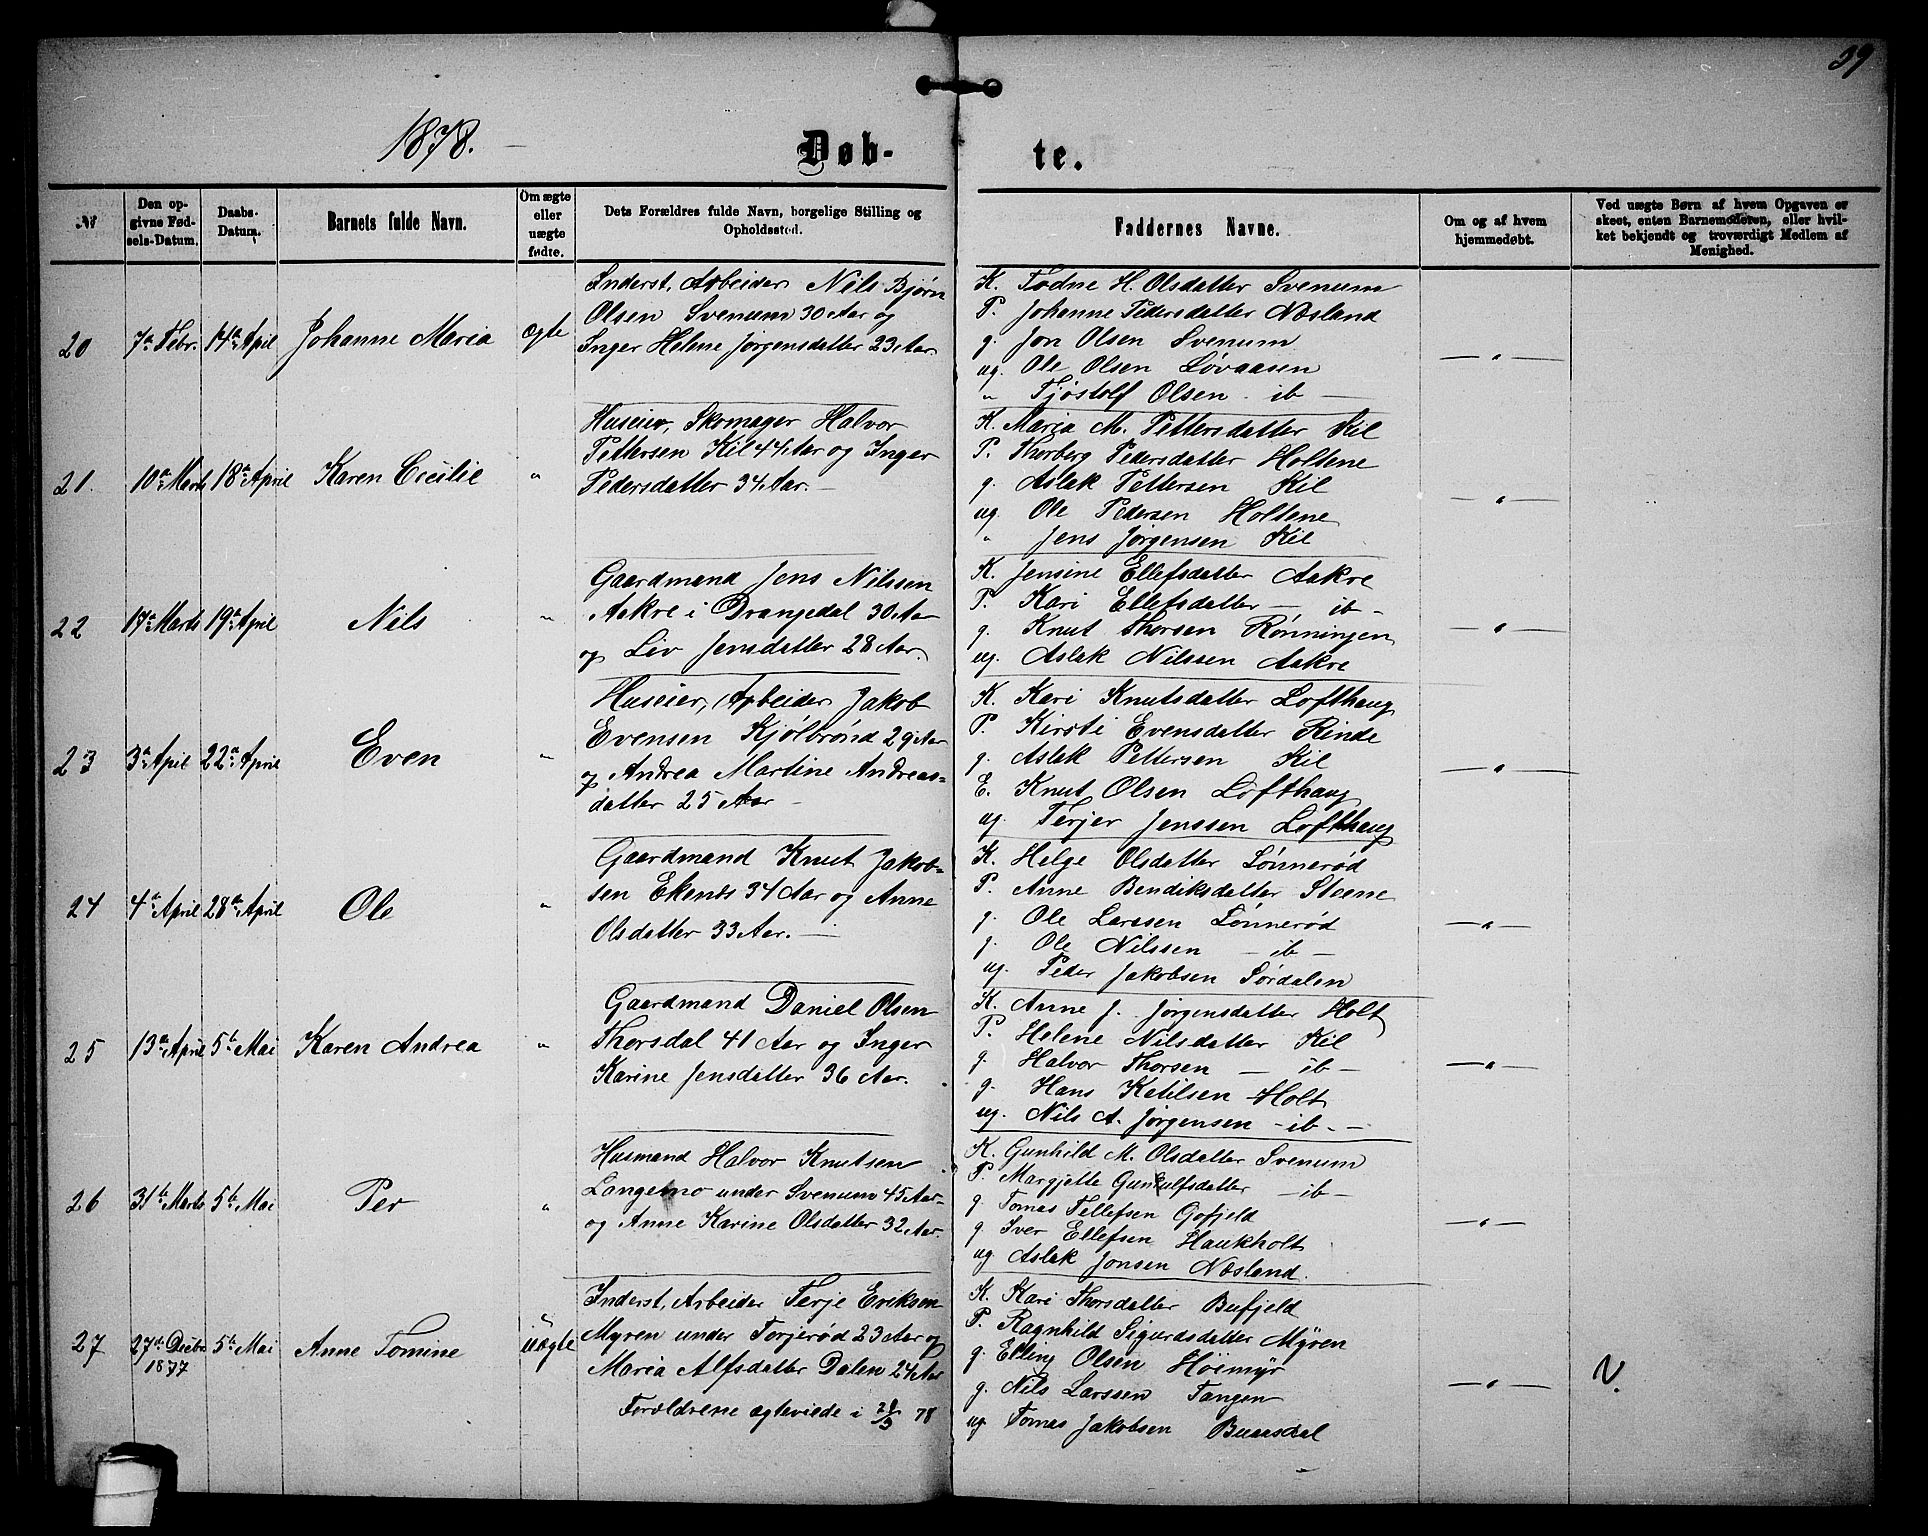 39
1878.
Døb-
te.
№
Den op-
givne Fød-
sels-Datum.
Daabs-
Datum.
Barnets fulde Navn.
Om ægte
eller
uægte
fødte.
Dets Forældres fulde Navn, borgelige Stilling og
Opholdssted.
Faddernes Navne.
Om og af hvem
hjemmedøbt.
Ved uægte Børn af hvem Opgaven er
skeet, enten Barnemoderen, eller hvil-
ket bekjendt og troværdigt Medlem af
Menighed.
20
7de Febr.
14de April
Johanne Maria
ægte
Inderst, Arbeider Nils Bjørn
Olsen Svenum 30 Aar og
Inger Helene Jørgensdatter 23 Aar
K. Todne H. Olsdatter Svenum
P. Johanne Pedersdatter Næsland
g. Jon Olsen Svenum
ug. Ole Olsen Løvaasen
" Tjostolf Olsen - ib —
— " —
21.
10de Marts
18de April
Karen Cecilie
"
Huseier, Skomager Halvor
Pettersen Kil 44 Aar og Inger
Pedersdatter 34 Aar. —
K. Maria M. Pettersdatter Kil
P. Thorberg Pedersdatter Holtene
g. Aslak Pettersen Kil
ug. Ole Pedersen Holtene
" Jens Jørgensen Kil
— " —
22
17de Marts
19de April
Nils
"
Gaardmand Jens Nilssen
Aakre i Drangedal 30 Aar
og Liv Jensdatter 28 Aar.
K. Jensine Ellefsdatter Aakre
P. Kari Ellefsdatter — ib -
g. Knut Thorsen Rønningen
ug. Aslak Nilssen Aakre
— " —
23
3de April
22de April
Even
"
Huseier, Arbeider Jakob
Evensen Kjølbrønd 29 Aar
og Andrea Martine Andreas-
datter 25 Aar —
K. Kari Knutsdatter Lofthaug
P. Kirsti Evensdatter Rinde
g. Aslak Pettersen Kil
E. Knut Olsen Lofthaug
ug. Terjer Jenssen Lofthaug
— " —
24
4de April
28de April
Ole
"
Gaardmand Knut Jakob-
sen Ekenes 34 Aar og Anne
Olsdatter 33 Aar. —
K. Helge Olsdatter Lønnerød
P. Anne Bendiksdatter Steene
g. Ole Larssen Lønnerød
g. Ole Nilssen — ib —
ug. Peder Jakobsen Sørdalen
— " —
25
13de April
5te Mai
Karen Andrea
"
Gaardmand Daniel Olsen
Thorsdal 41 Aar og Inger
Karine Jensdatter 36 Aar.
K. Anne J. Jørgensdatter Holt
P. Helene Nilsdatter Kil
g. Halvor Thorsen — ib —
g. Hans Ketilsen Holt
ug. Nils A. Jørgensen - ib - -
— " —
26
31te Marts
5te Mai
Per
"
Husmand Halvor Knutsen
Langemo under Svenum 45 Aar
og Anne Karine Olsdatter 32 Aar.
K. Gunhild M. Olsdatter Svenum
P. Margjette Gunulfsdatter — ib —
g. Tomas Tellefsen Gofjeld
g. Iver Ellefsen Haukholt
ug. Aslak Jonsen Næsland.
— " —
27
27de Decbr
1877
5te Mai
Anne Tomine
uægte
Inderst, Arbeider Terje Eriksen
Myren under Torjerød 23 Aar og
Maria Alfsdatter Dalen 24 Aar
Forældrene ægteviede i 28/3 78
K. Kari Thorsdatter Bufjeld
P. Ragnhild Sigurdsdatter Myren
g. Elling Olsen Høimyr
g. Nils Larssen Tangen
ug. Tomas Jakobsen Buaasdal
— " —